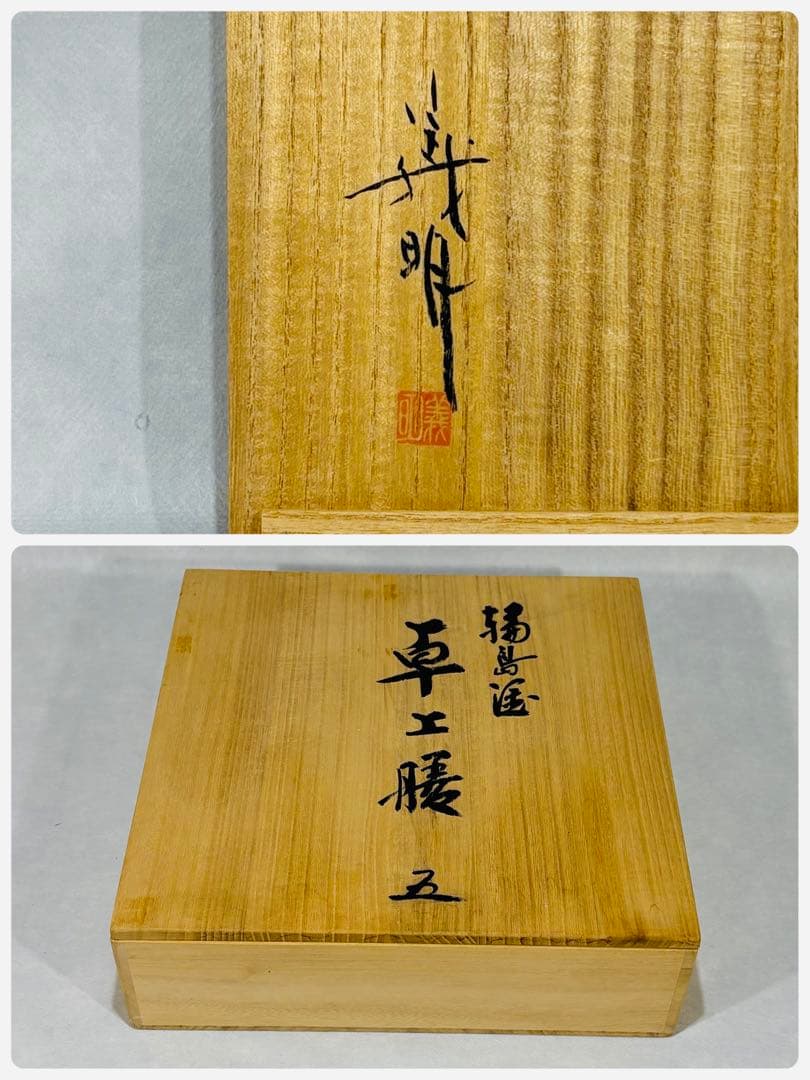 義明
義明
輪島塗
卓上膳 五